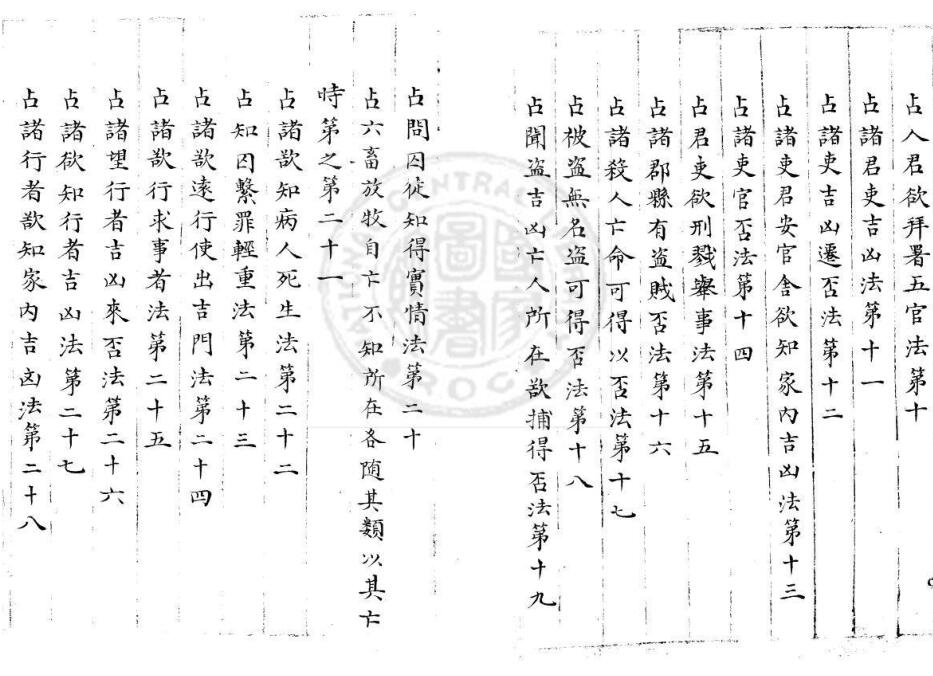 占人君欲拜署五官法第十
占諸君吏吉凶法第十一
占諸吏吉凶遷否法第十二
占諸吏君安官舍欲知家內吉凶法第十三
占諸吏官否法第十四
占君吏欲刑戮舉事法第十五
占諸郡縣有盜賊否法第十六
占諸殺人亡命可得以否法第十七
占被盜無名盜可得否法第十八
占聞盜吉凶亡人所在欲捕得否法第十九
占問囚徒知得實情法第二十
占六畜放牧自亡不知所在各随其類以其亡
時第之第二十一
占諸欲知病人死生法第二十二
占知囚繫罪輕重法第二十三
占諸欲遠行使出吉門法第二十四
占諸欲行求事者法第二十五
占諸望行者吉凶來否法第二十六
占諸欲知行者吉凶法第二十七
占諸行者欲知家內吉凶法第二十八